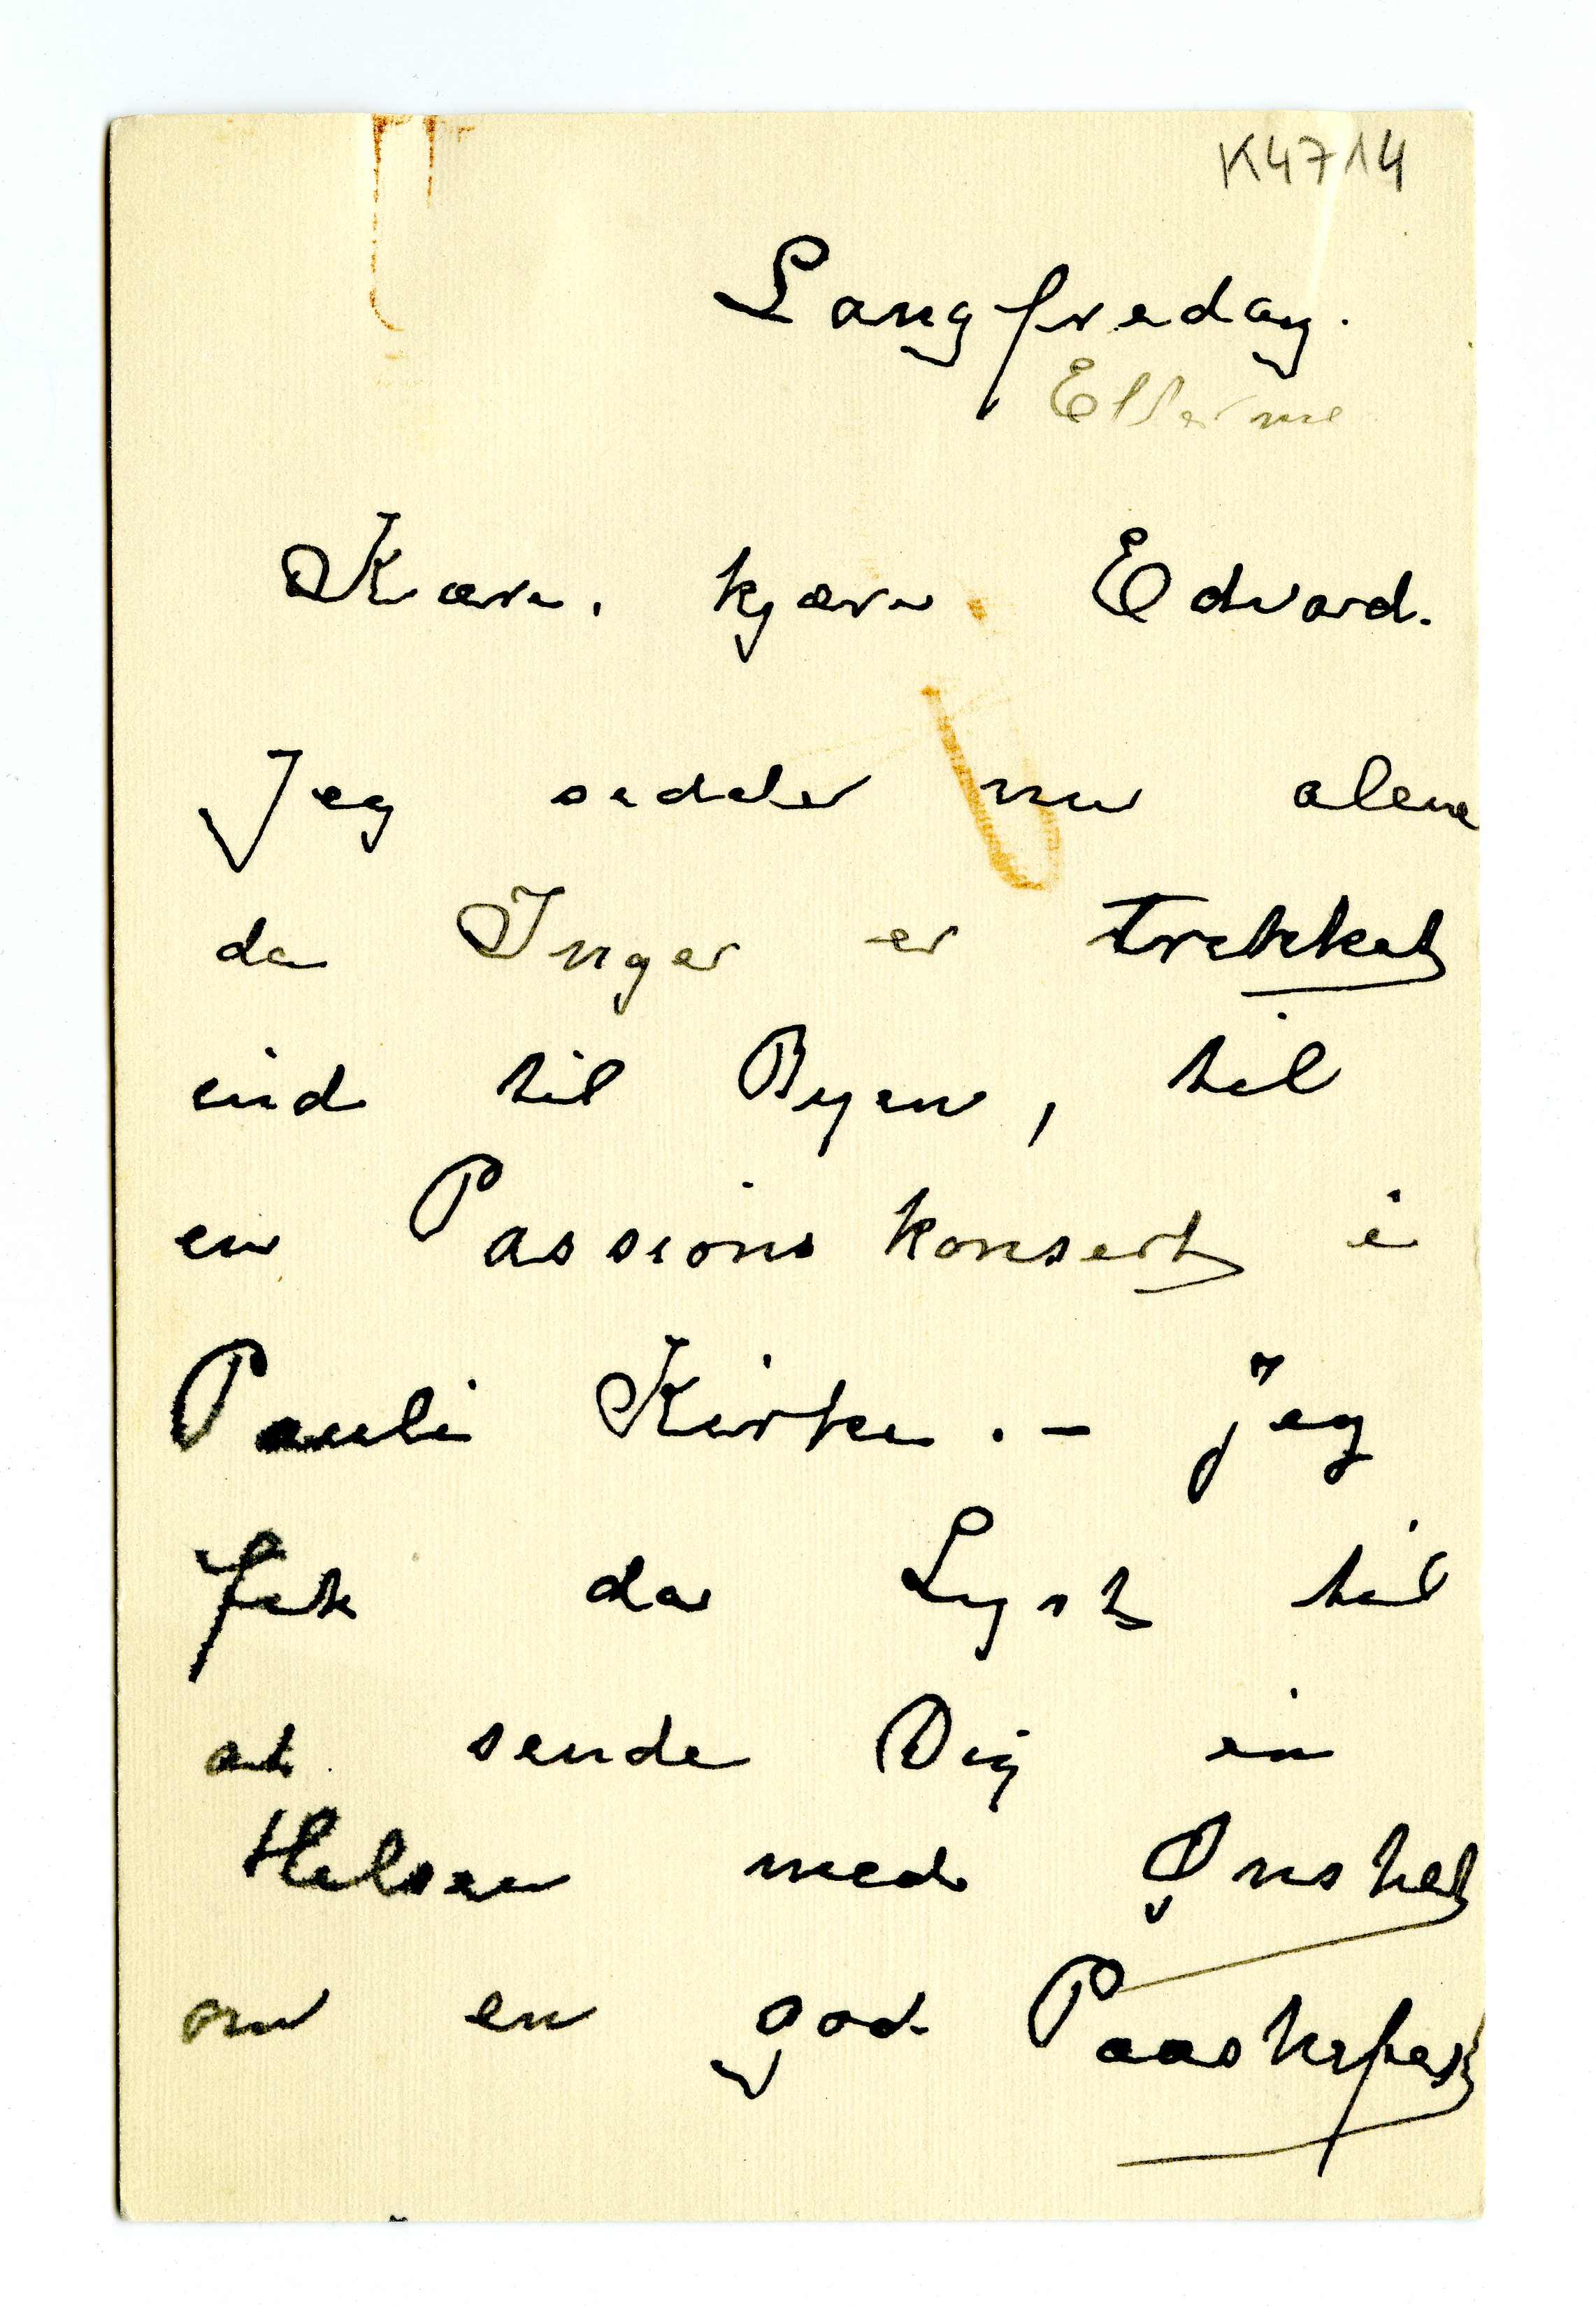 K4714
Langfredag.
Efterm
Kære, kjære Edvard.
Jeg sidder nu alene
da Inger er trekket
ind til Byen, til
en Passionskonsert i
Pauli Kirke. – Jeg
fik da Lyst til
at sende Dig en
Hilsen med Ønsket
om en god Paaskefest